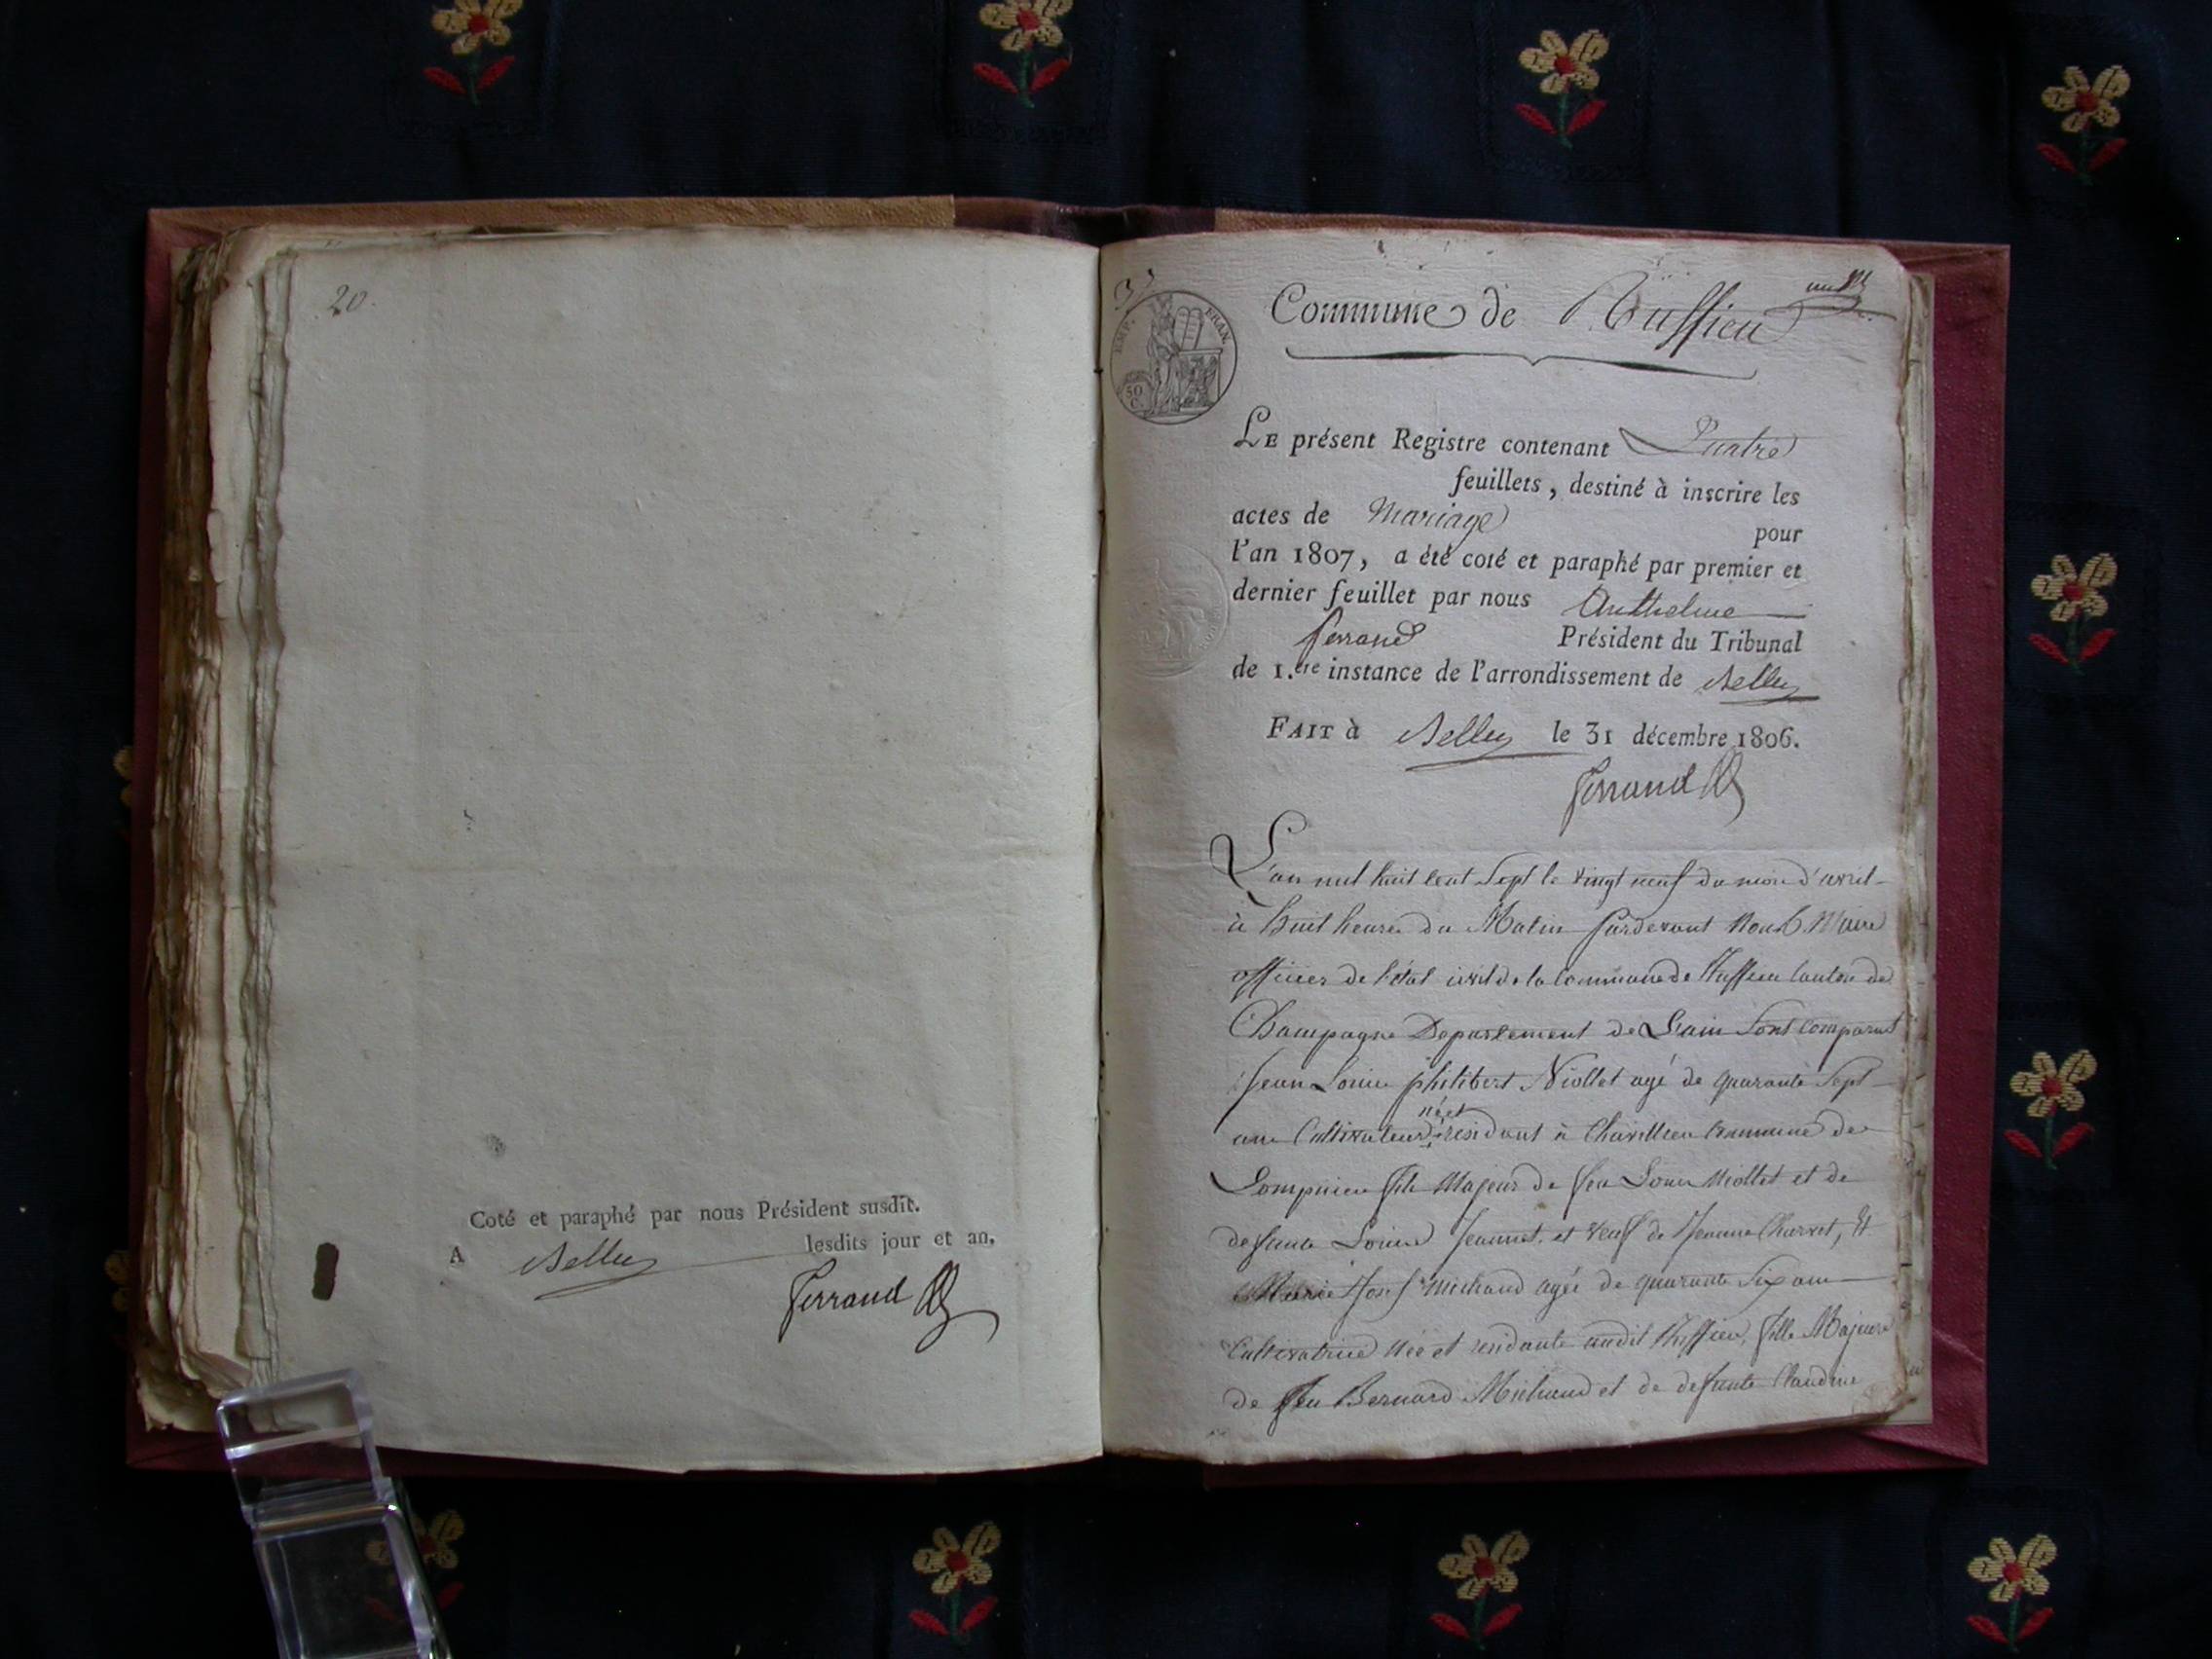 20.
Coté et paraphé par nous Président susdit.
A Belley lesdits jour et an.
Ferrand
EMP. FRAN.
50 C.
Commune de Ruffieu
LE présent Registre contenant Quatre
feuillets, destiné à inscrire les
actes de Mariage pour
l'an 1807, a été coté et paraphé par premier et
dernier feuillet par nous Anthelme
Ferrand Président du Tribunal
de 1.ere instance de l'arrondissement de Belley
FAIT à Belley le 31 décembre 1806.
Ferrand
L'an mil huit cent Sept le vingt neuf du mois d'avril
à huit heures du Matin pardevant Nous Maire
officier de l'état civil de la Commune de Ruffieu Canton de
Champagne Departement de L'ain Sont comparus
Jean Louis philibert Niollet agé de quarante Sept
ans Cultivateur né et résidant à Charillieu Commune de
Lompnieu fils Majeur de feu Louis Niollet et de
defunte Louise Jeannet et veuf de Jeanne Charvet, Et
Marie Michaud agée de quarante Six ans
Cultivatrice Née et residante audit Ruffieu, fille Majeure
de feu Bernard Michaud et de defunte Claudine